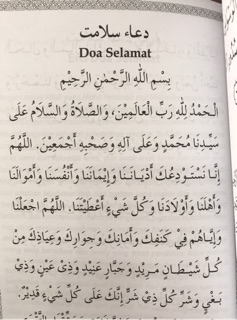 دعاء سلامت
Doa Selamat
بِسْمِ اللَّهِ الرَّحْمٰنِ الرَّحِيْمِ
الْحَمْدُ لِلّٰهِ رَبِّ الْعَالَمِيْنَ، وَالصَّلَاةُ وَالسَّلَامُ عَلَى
سَيِّدِنَا مُحَمَّدٍ وَعَلَى آلِهِ وَصَحْبِهِ أَجْمَعِيْنَ. اَللَّهُمَّ
إِنَّا نَسْتَوْدِعُكَ أَدْيَانَنَا وَإِيْمَانَنَا وَأَنْفُسَنَا وَأَمْوَالَنَا
وَأَهْلَنَا وَأَوْلَادَنَا وَكُلَّ شَيْءٍ أَعْطَيْتَنَا. اَللَّهُمَّ اجْعَلْنَا
وَإِيَّاهُمْ فِيْ كَنَفِكَ وَأَمَانِكَ وَجِوَارِكَ وَعِيَاذِكَ مِنْ
كُلِّ شَيْطَانٍ مَرِيْدٍ وَجَبَّارٍ عَنِيْدٍ وَذِيْ عَيْنٍ وَذِيْ
بَغْيٍ وَشَرِّ كُلِّ ذِيْ شَرٍّ إِنَّكَ عَلَى كُلِّ شَيْءٍ قَدِيْرٌ.